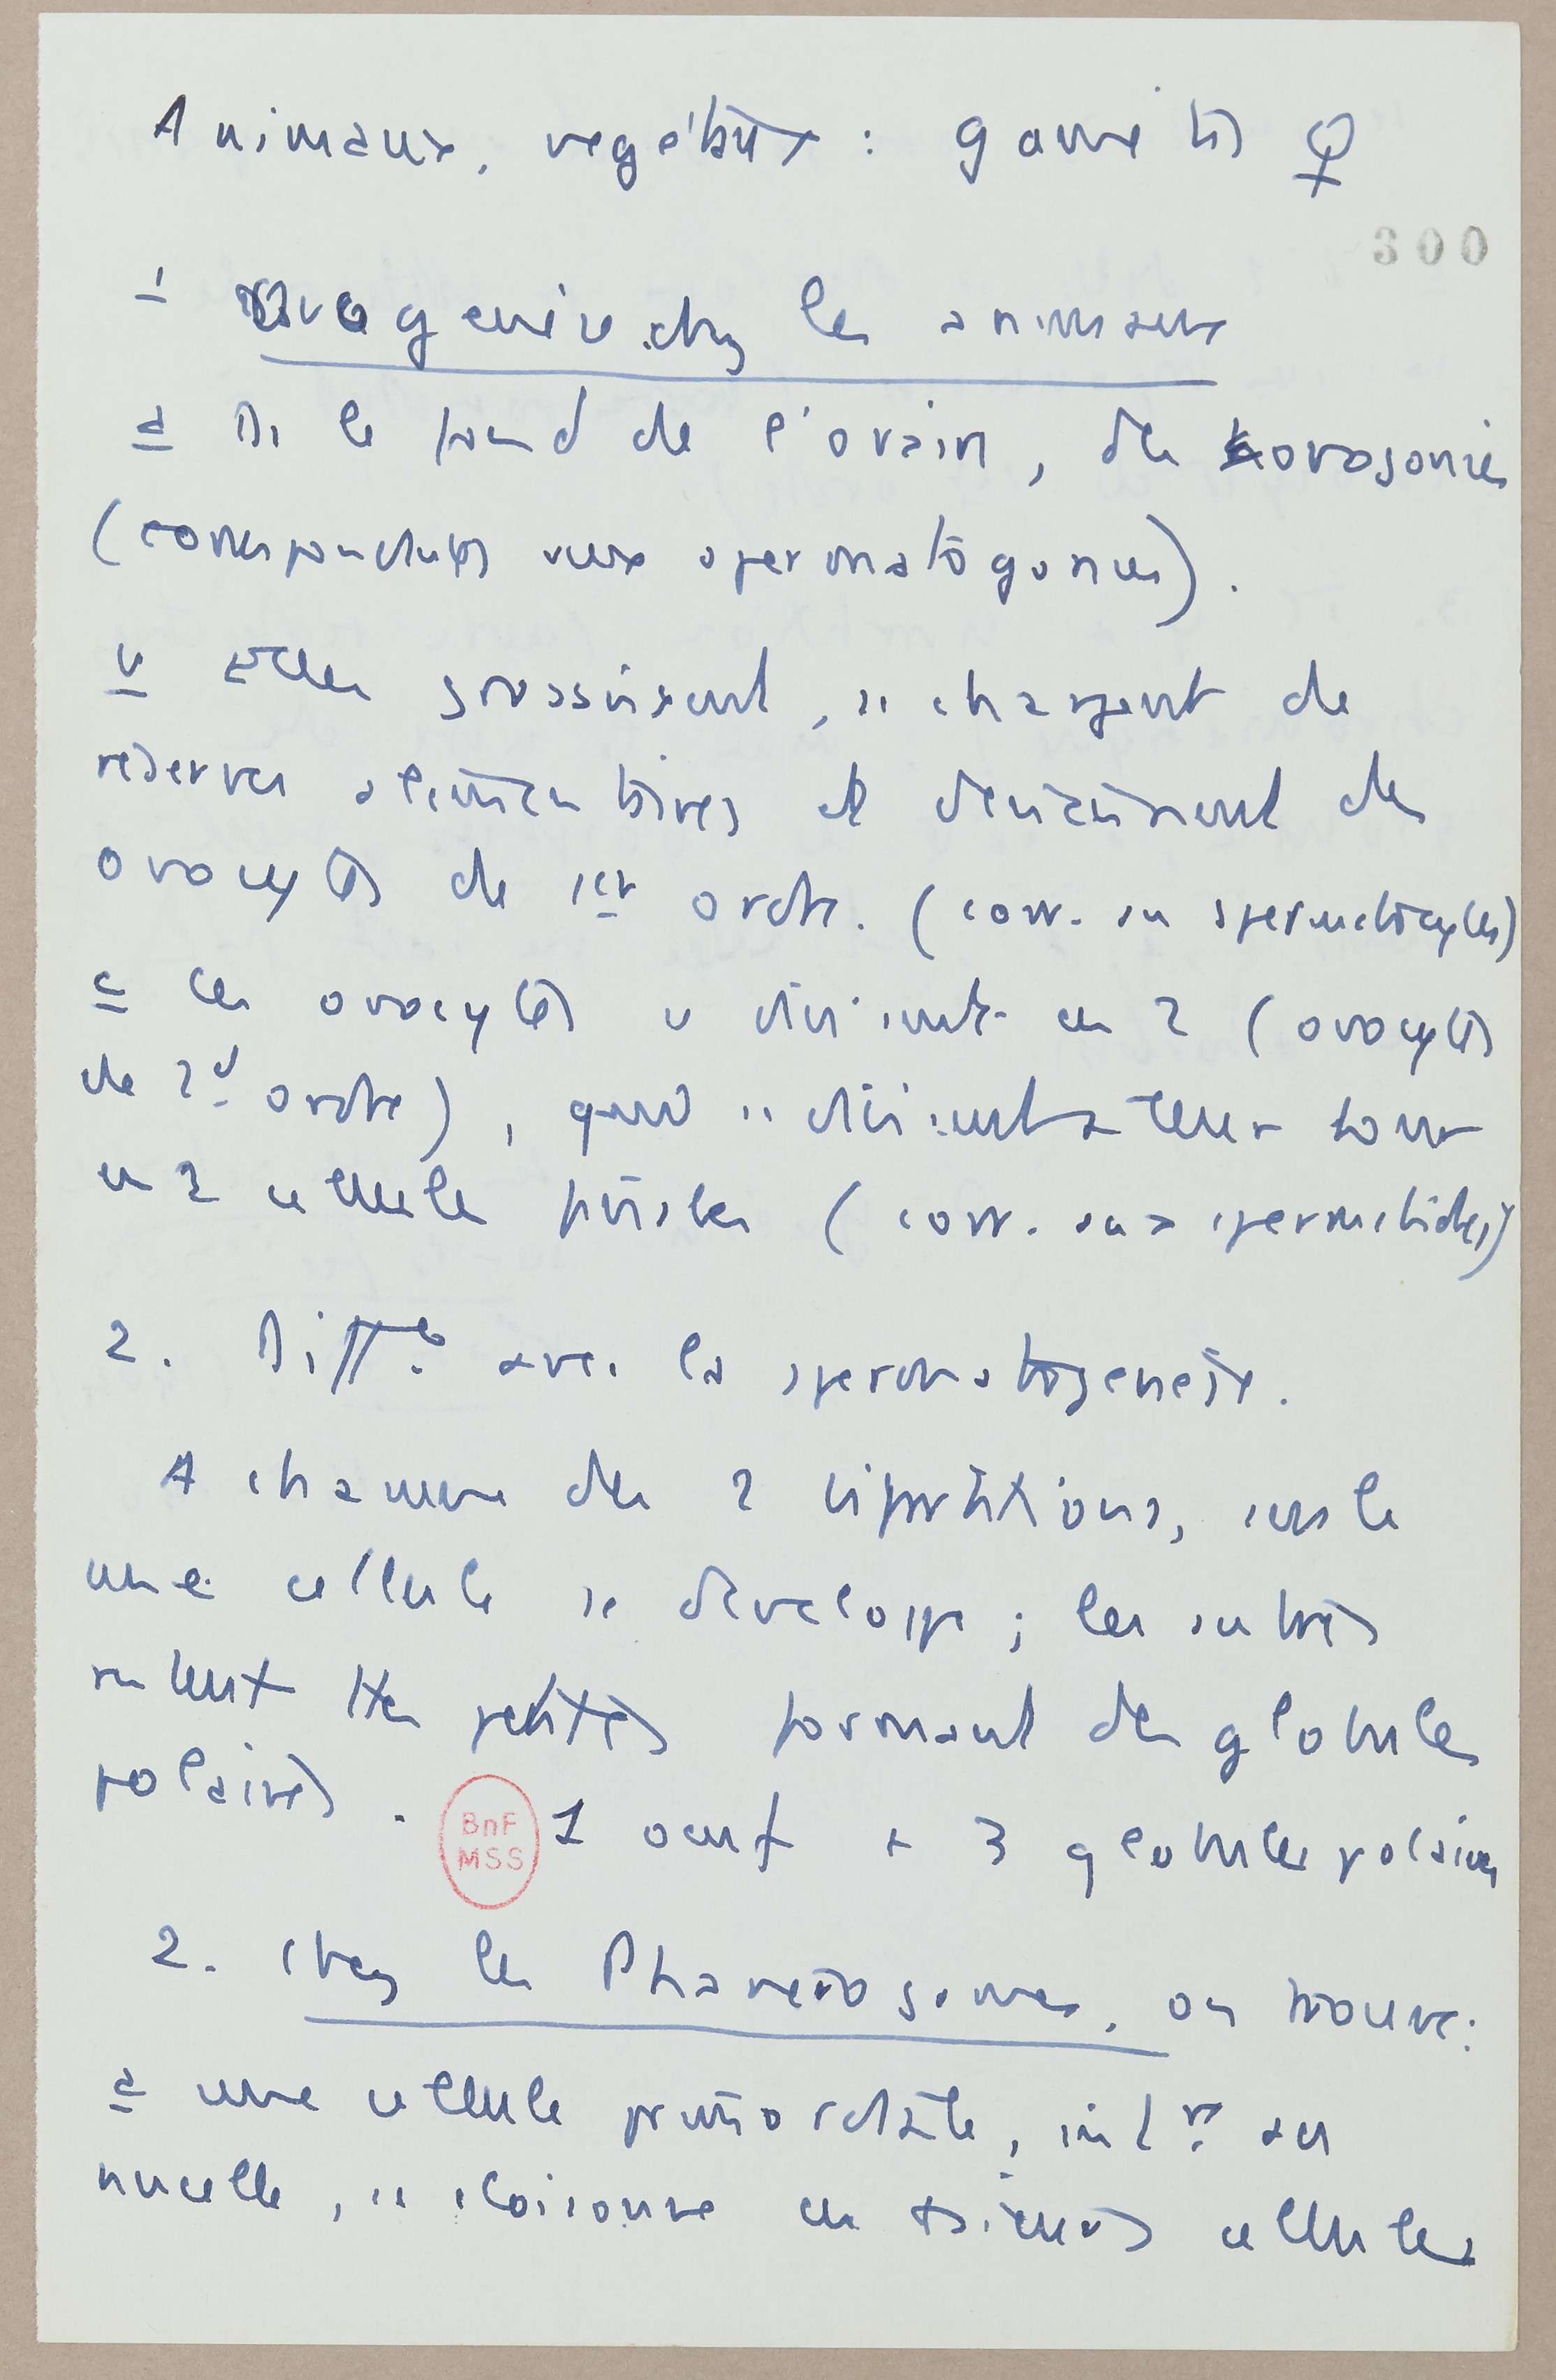 Animaux, végétaux : gamètes ♀
300
1 Ovogenèse chez les animaux
a Ds le fond de l'ovaire, des ovogonies
(correspondantes aux spermatogonies).
b Elles grossissent, se chargent de
réserves alimentaires et deviennent des
ovocytes de 1er ordre. (corr. au spermatocytes)
c les ovocytes se divisent en 2 (ovocytes
de 2d ordre), qui se divisent à leur tour
en 2 cellules filiales (corr. aux spermatides)
2. Diffce avec la spermatogenèse.
A chacune des 2 bipartitions, seule
une cellule se développe ; les autres
restent très petites formant des globules
polaires. 1 oeuf + 3 globules polaires
BnF
MSS
2. Chez les Phanérogames, on trouve :
a une cellule primordiale, intre au
nucelle, se cloisonne en plusieurs cellules